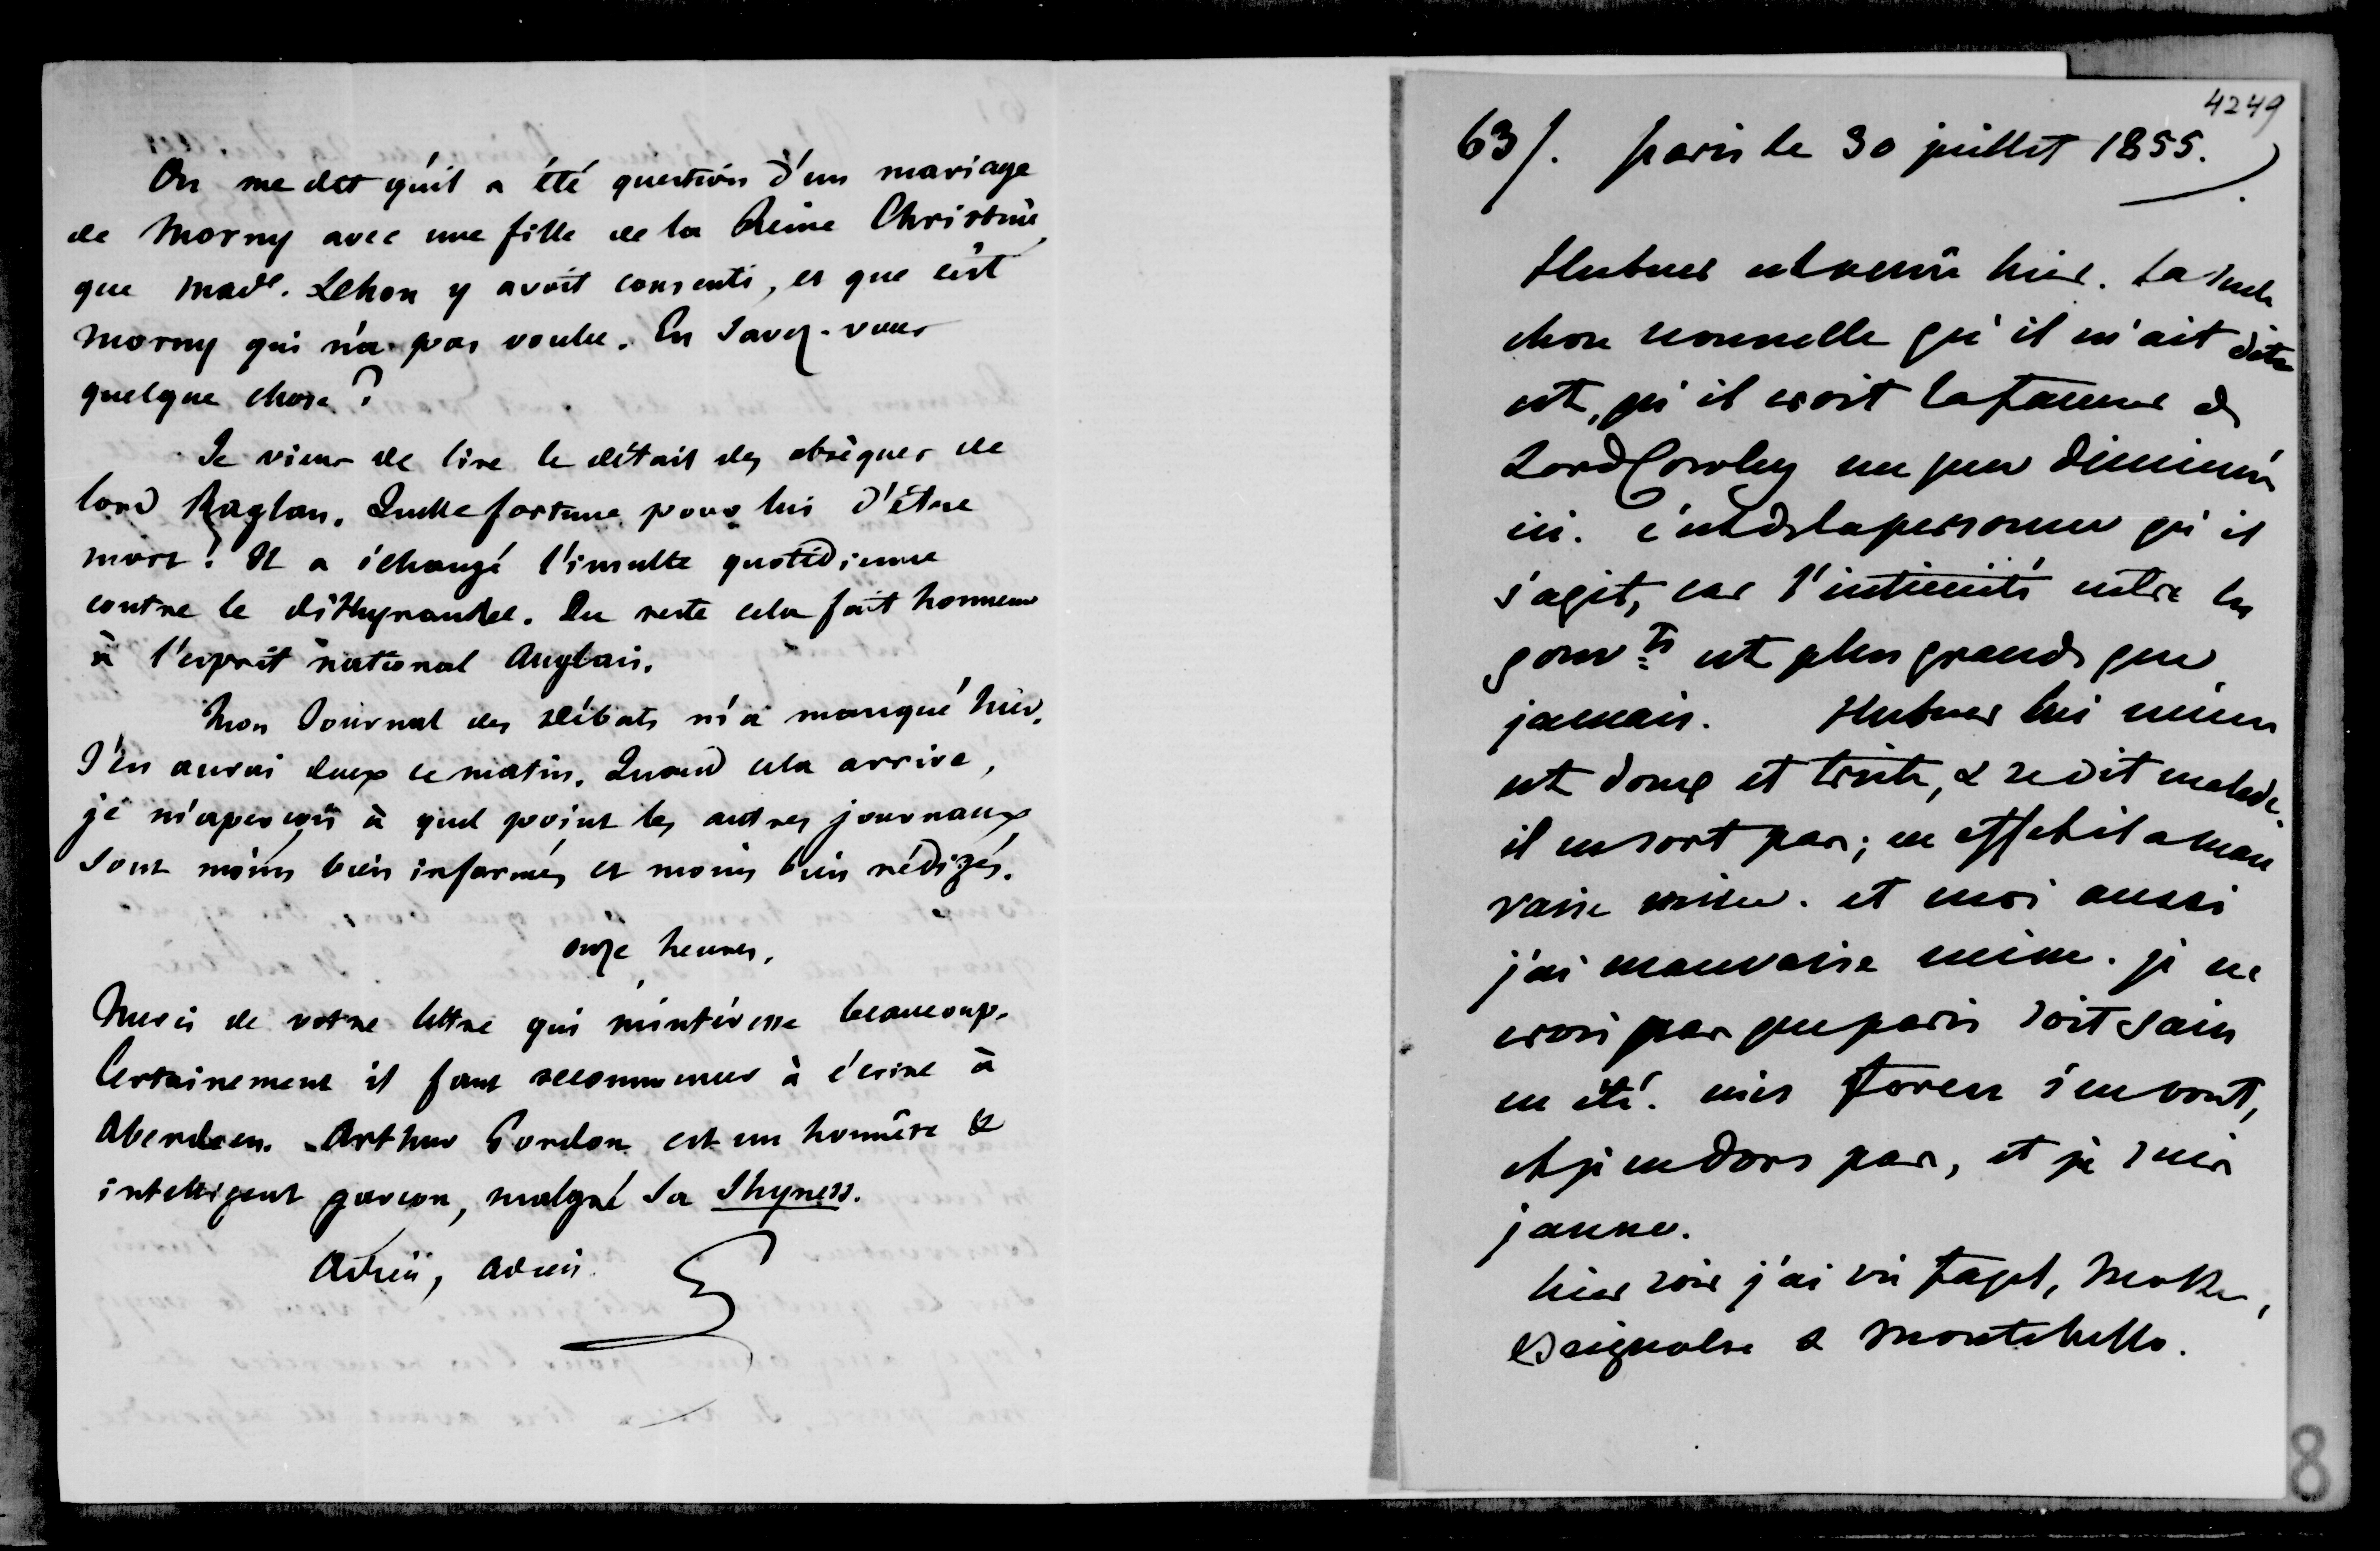 On me dit qu'il a été question d'un mariage
de Morny avec une fille de la Reine Christine,
que Made. Lehon y avoit consenti, et que c'est
Morny qui n'a pas voulu. En savez-vous
quelque chose ?
Je viens de lire le détail des obsèques de
lord Raglan. Quelle fortune pour lui d'être
mort ! Il a échangé l'insulte quotidienne
contre le dithyrambe. Du reste cela fait honneur
à l'esprit national Anglais.
Mon Journal des Débats m'a manqué hier.
J'en aurai deux ce matin. Quand cela arrive,
je m'aperçois à quel point les autres journaux
sont moins bien informés et moins bien rédigés.
onze heures,
Merci de votre lettre qui m'intéresse beaucoup.
Certainement il faut recommencer à écrire à
Aberdeen. Arthur Gordon est un honnête &
intelligent garçon, malgré sa Shyness.
Adieu, adieu.
4249
63/. paris le 30 juillet 1855.
Hubner est venu hier. la seule
chose nouvelle qu'il m'ait dite
est, qu'il croit la faveur de
Lord Cowley un peu diminuée
ici. c'est de la personne qu'il
s'agit, car l'intimité entre les
gouvts est plus grande que
jamais. Hubner lui même
est doux et triste, & se dit malade.
il ne sort pas ; en effet il a mau
vaise mine. et moi aussi
j'ai mauvaise mine. je ne
crois pas que paris soit sain
en été. mes forces s'en vont,
et je ne dors pas, et je suis
jaune.
hier soir j'ai vu Fagel, Molke,
& Montebello.
8